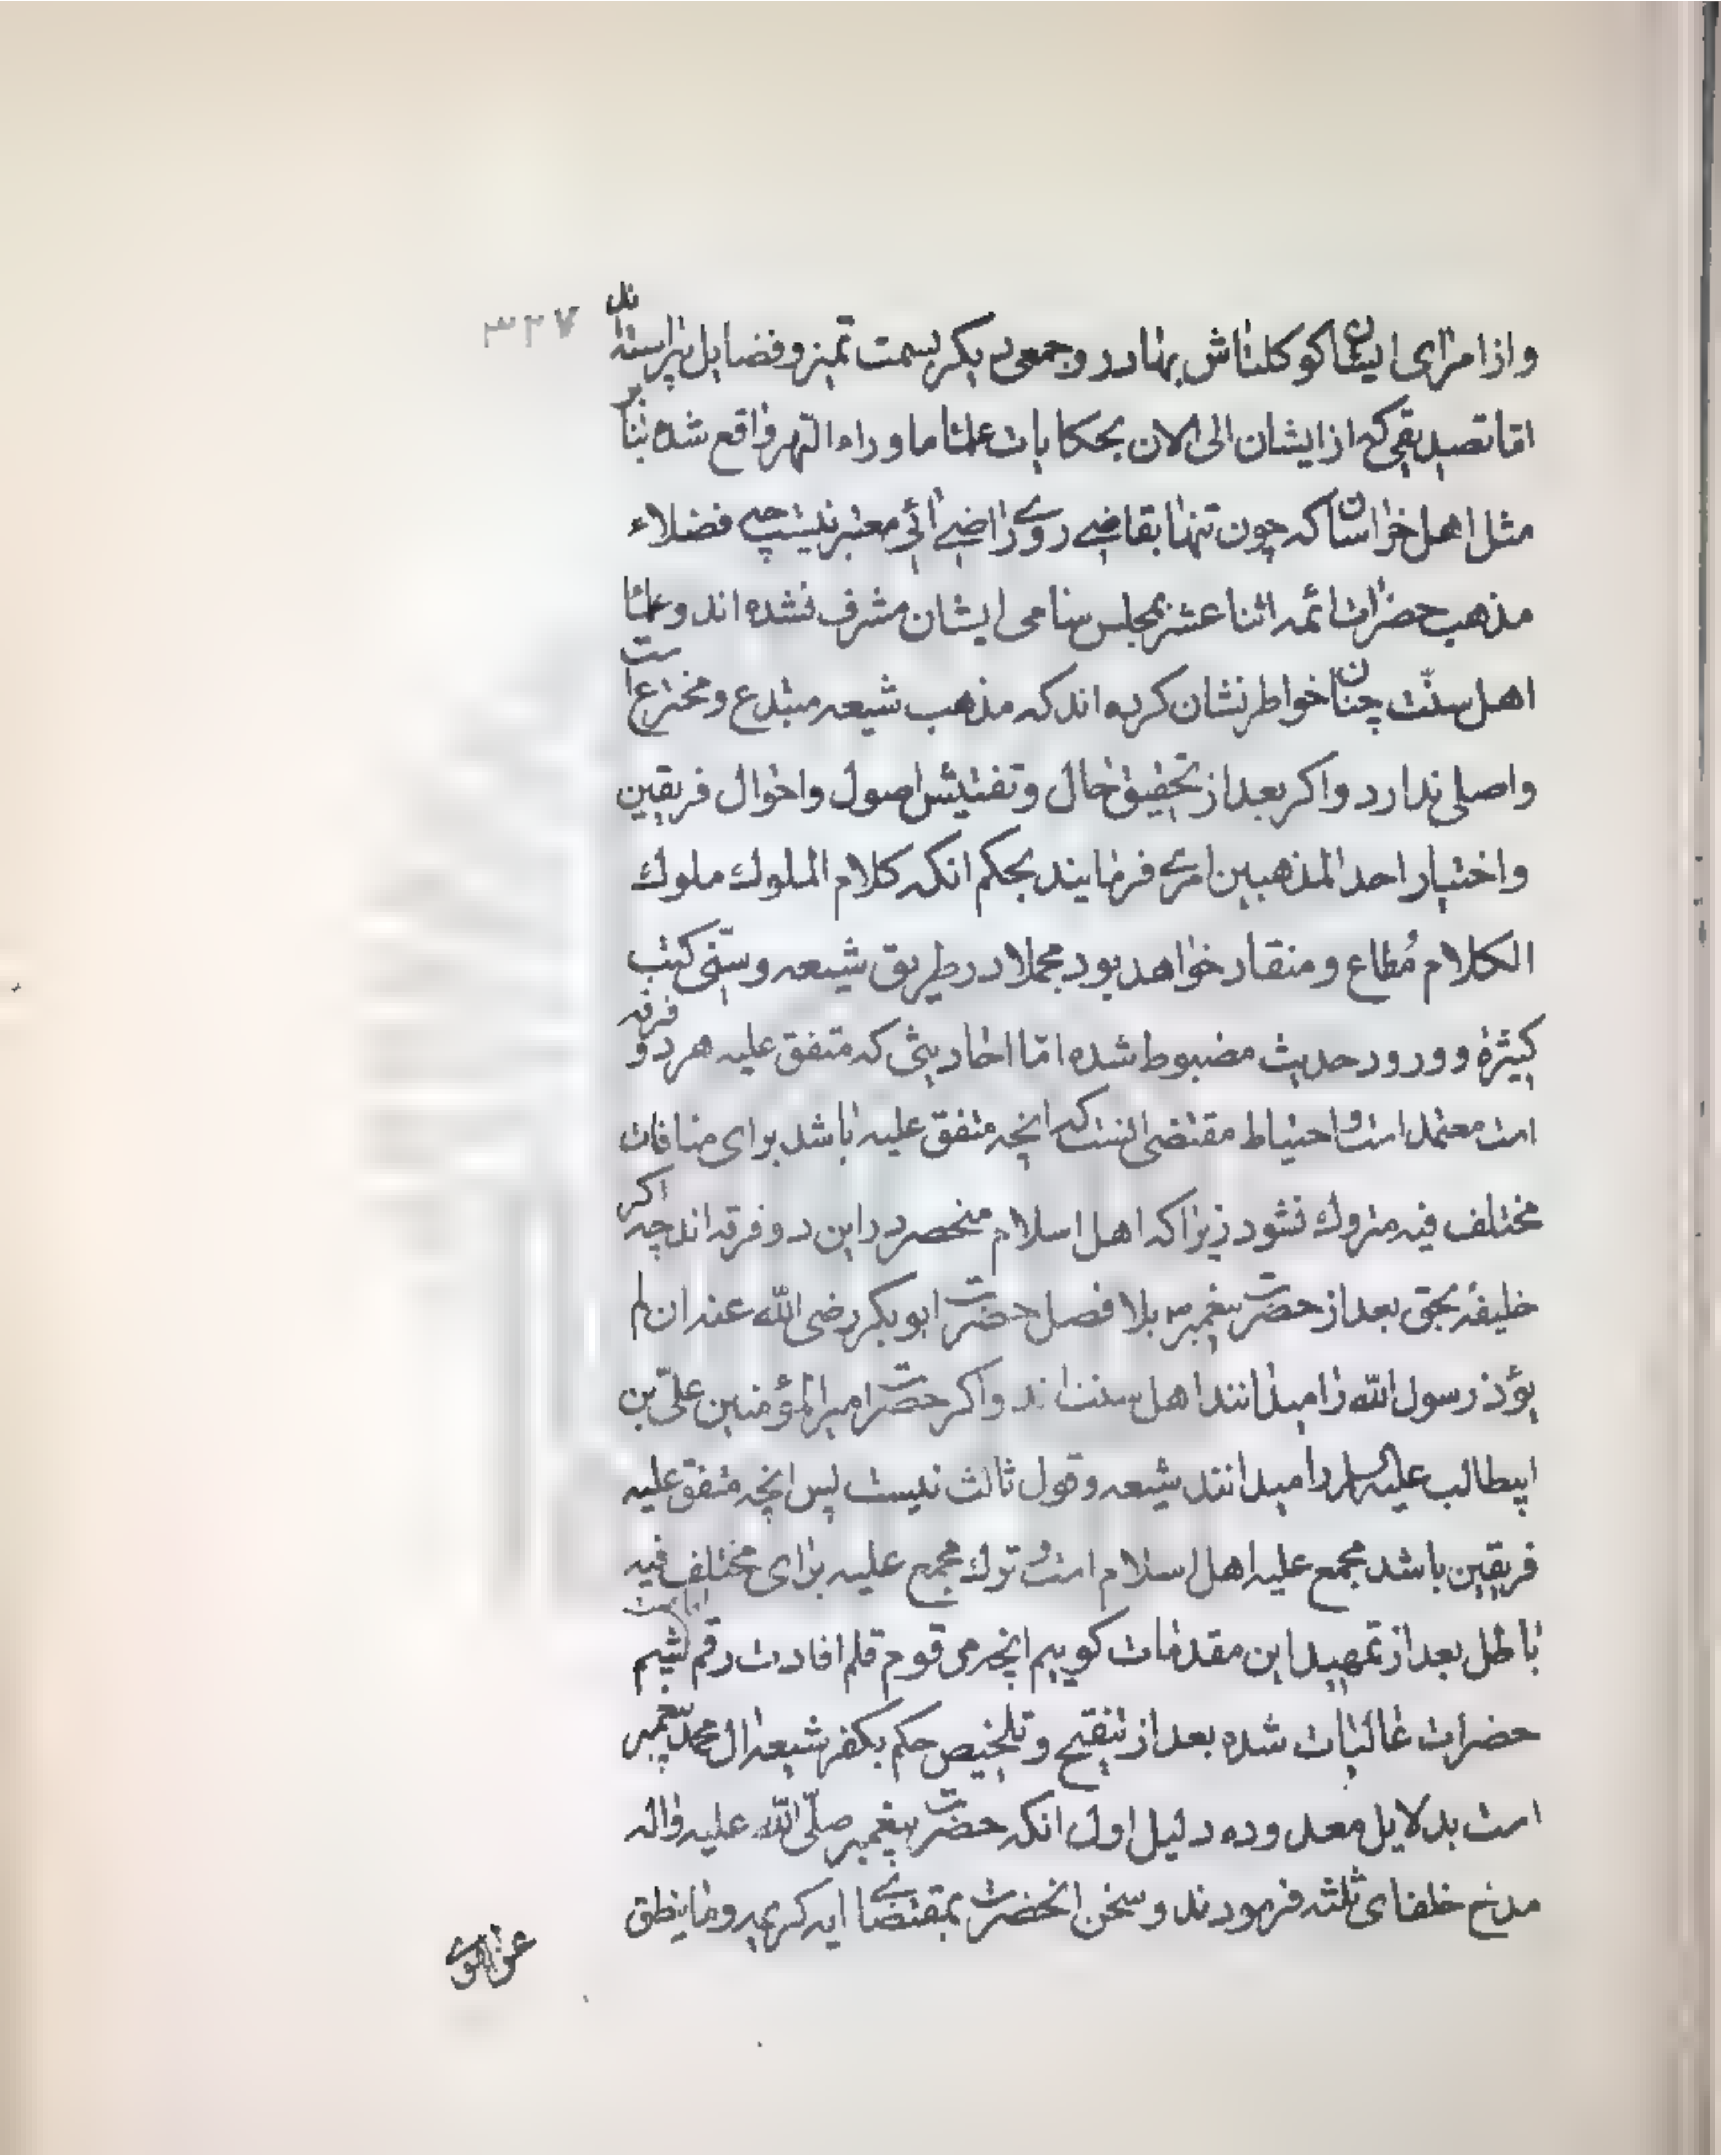 ۳۲۷
واز امرای ایشان کوکلتاش بهادر و جمعی دیکر بسمت تمیز و فضایل پیراسته‌اند
امّا تصدیقی که از ایشان الی الان بحکایات علما ماوراء النّهر واقع شده بنابر
مثل اهل خراسان که چون تنها بقاضے روے راضے ائی معتبر نیست چے فضلاء
مذهب حضرات ائمه اثنا عشر بمجلس سامی ایشان مشرف نشده اند و علما
اهل سنّت چنان خواطر نشان کرده اند که مذهب شیعه مبتدع و مخترع است
واصلی ندارد واکر بعد از تحقیق حال و تفتیش اصول واحوال فریقین
واختیار احد المذهبین امرے فرمایند بحکم انکه کلام الملوك ملوك
الکلام مُطاع و منقاد خواهد بود مجملا در طریق شیعه و سنّی کتب
کثیرهٔ و ورود حدیث مضبوط شده امّا احادیثی که متفق علیه هر دو فرقه
است معتمد است و احتیاط مقتضی انست که انچه متفق علیه باشد برای منافات
مختلف فیه متروك نشود زیرا که اهل اسلام منحصر در این دو فرقه اند چه اکر
خلیفهٔ بحق بعد از حضرت پیغمبر ص بلا فصل حضرت ابوبکر رضی الله عنه ان
رسول الله را میدانند اهل سنت اند واکر حضرت امیر المؤمنین علیّ بن
ابیطالب علیه السلام را میدانند شیعه و قول ثالث نیست پس انچه متفق علیه
فریقین باشد مجمع علیه اهل اسلام است و ترك مجمع علیه برای مختلف فیه
باطل بعد از تمهید این مقدمات کوییم انچه مرقوم قلم افادت رقم
حضرات عالیات شده بعد از تنقیح و تلخیص حکم بکفر شیعه ال محمّد پیغمبر
است بدلایل معدوده دلیل اول انکه حضرت پیغمبر صلّی الله علیه واله
مدح خلفای ثلثه فرمودند و سخن انحضرت بمقتضاے ایه کریمه وما ینطق
عن الهوی